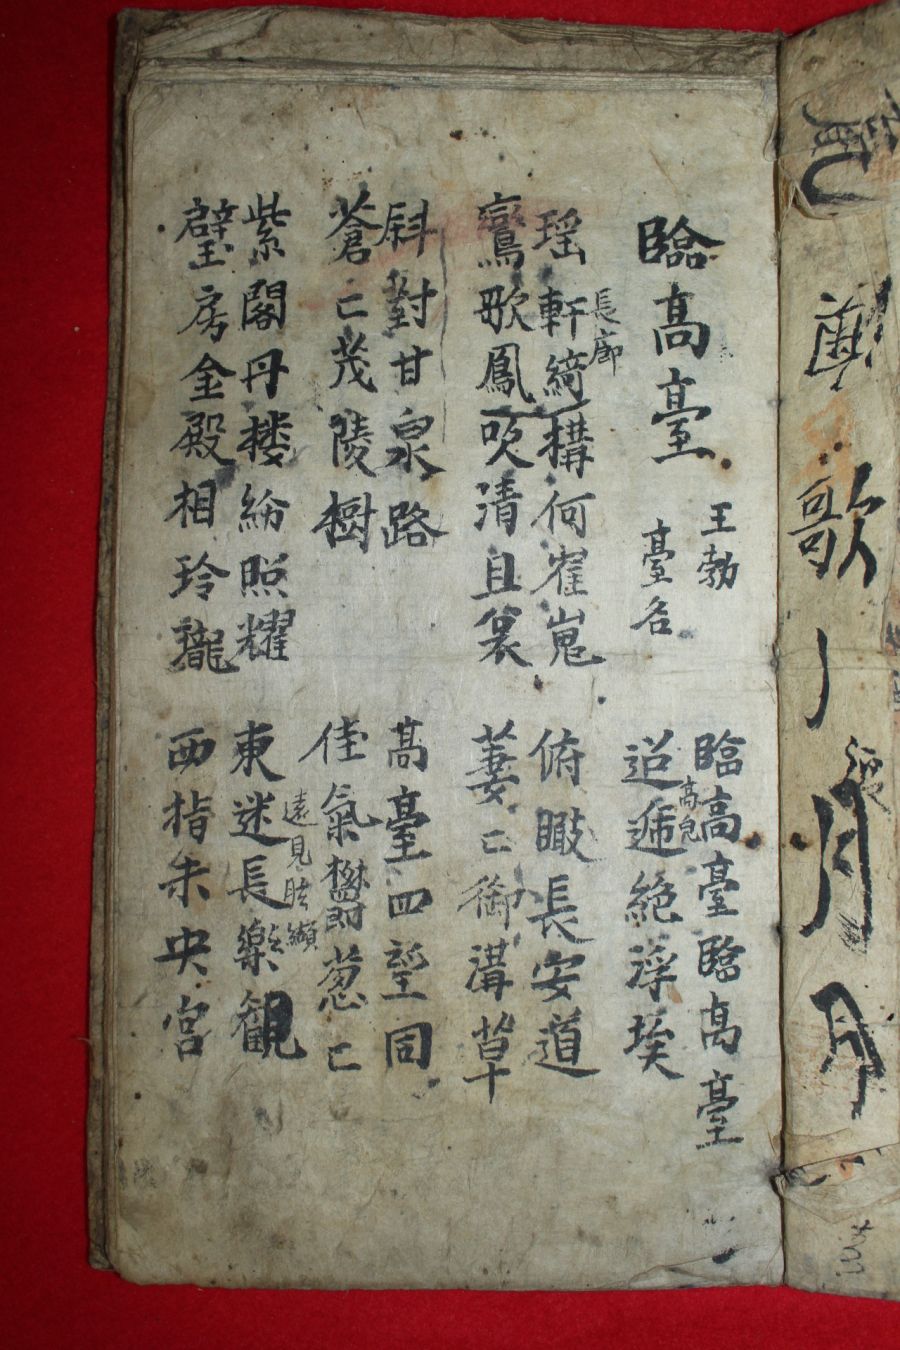 臨高臺
王勃
臺名
臨高臺臨高臺
迢遞絶浮埃
高皃
瑶軒綺構何崔嵬
長廊
鸞歌鳳吹清且裒
俯瞰長安道
萋〻御溝草
斜對甘泉路
蒼〻茂陵樹
高臺四望同
佳氣欝葱〻
紫閣丹楼紛照耀
璧房金殿相玲瓏
東迷長樂観
遠見眩纈
西指未央宮
歌
月
月